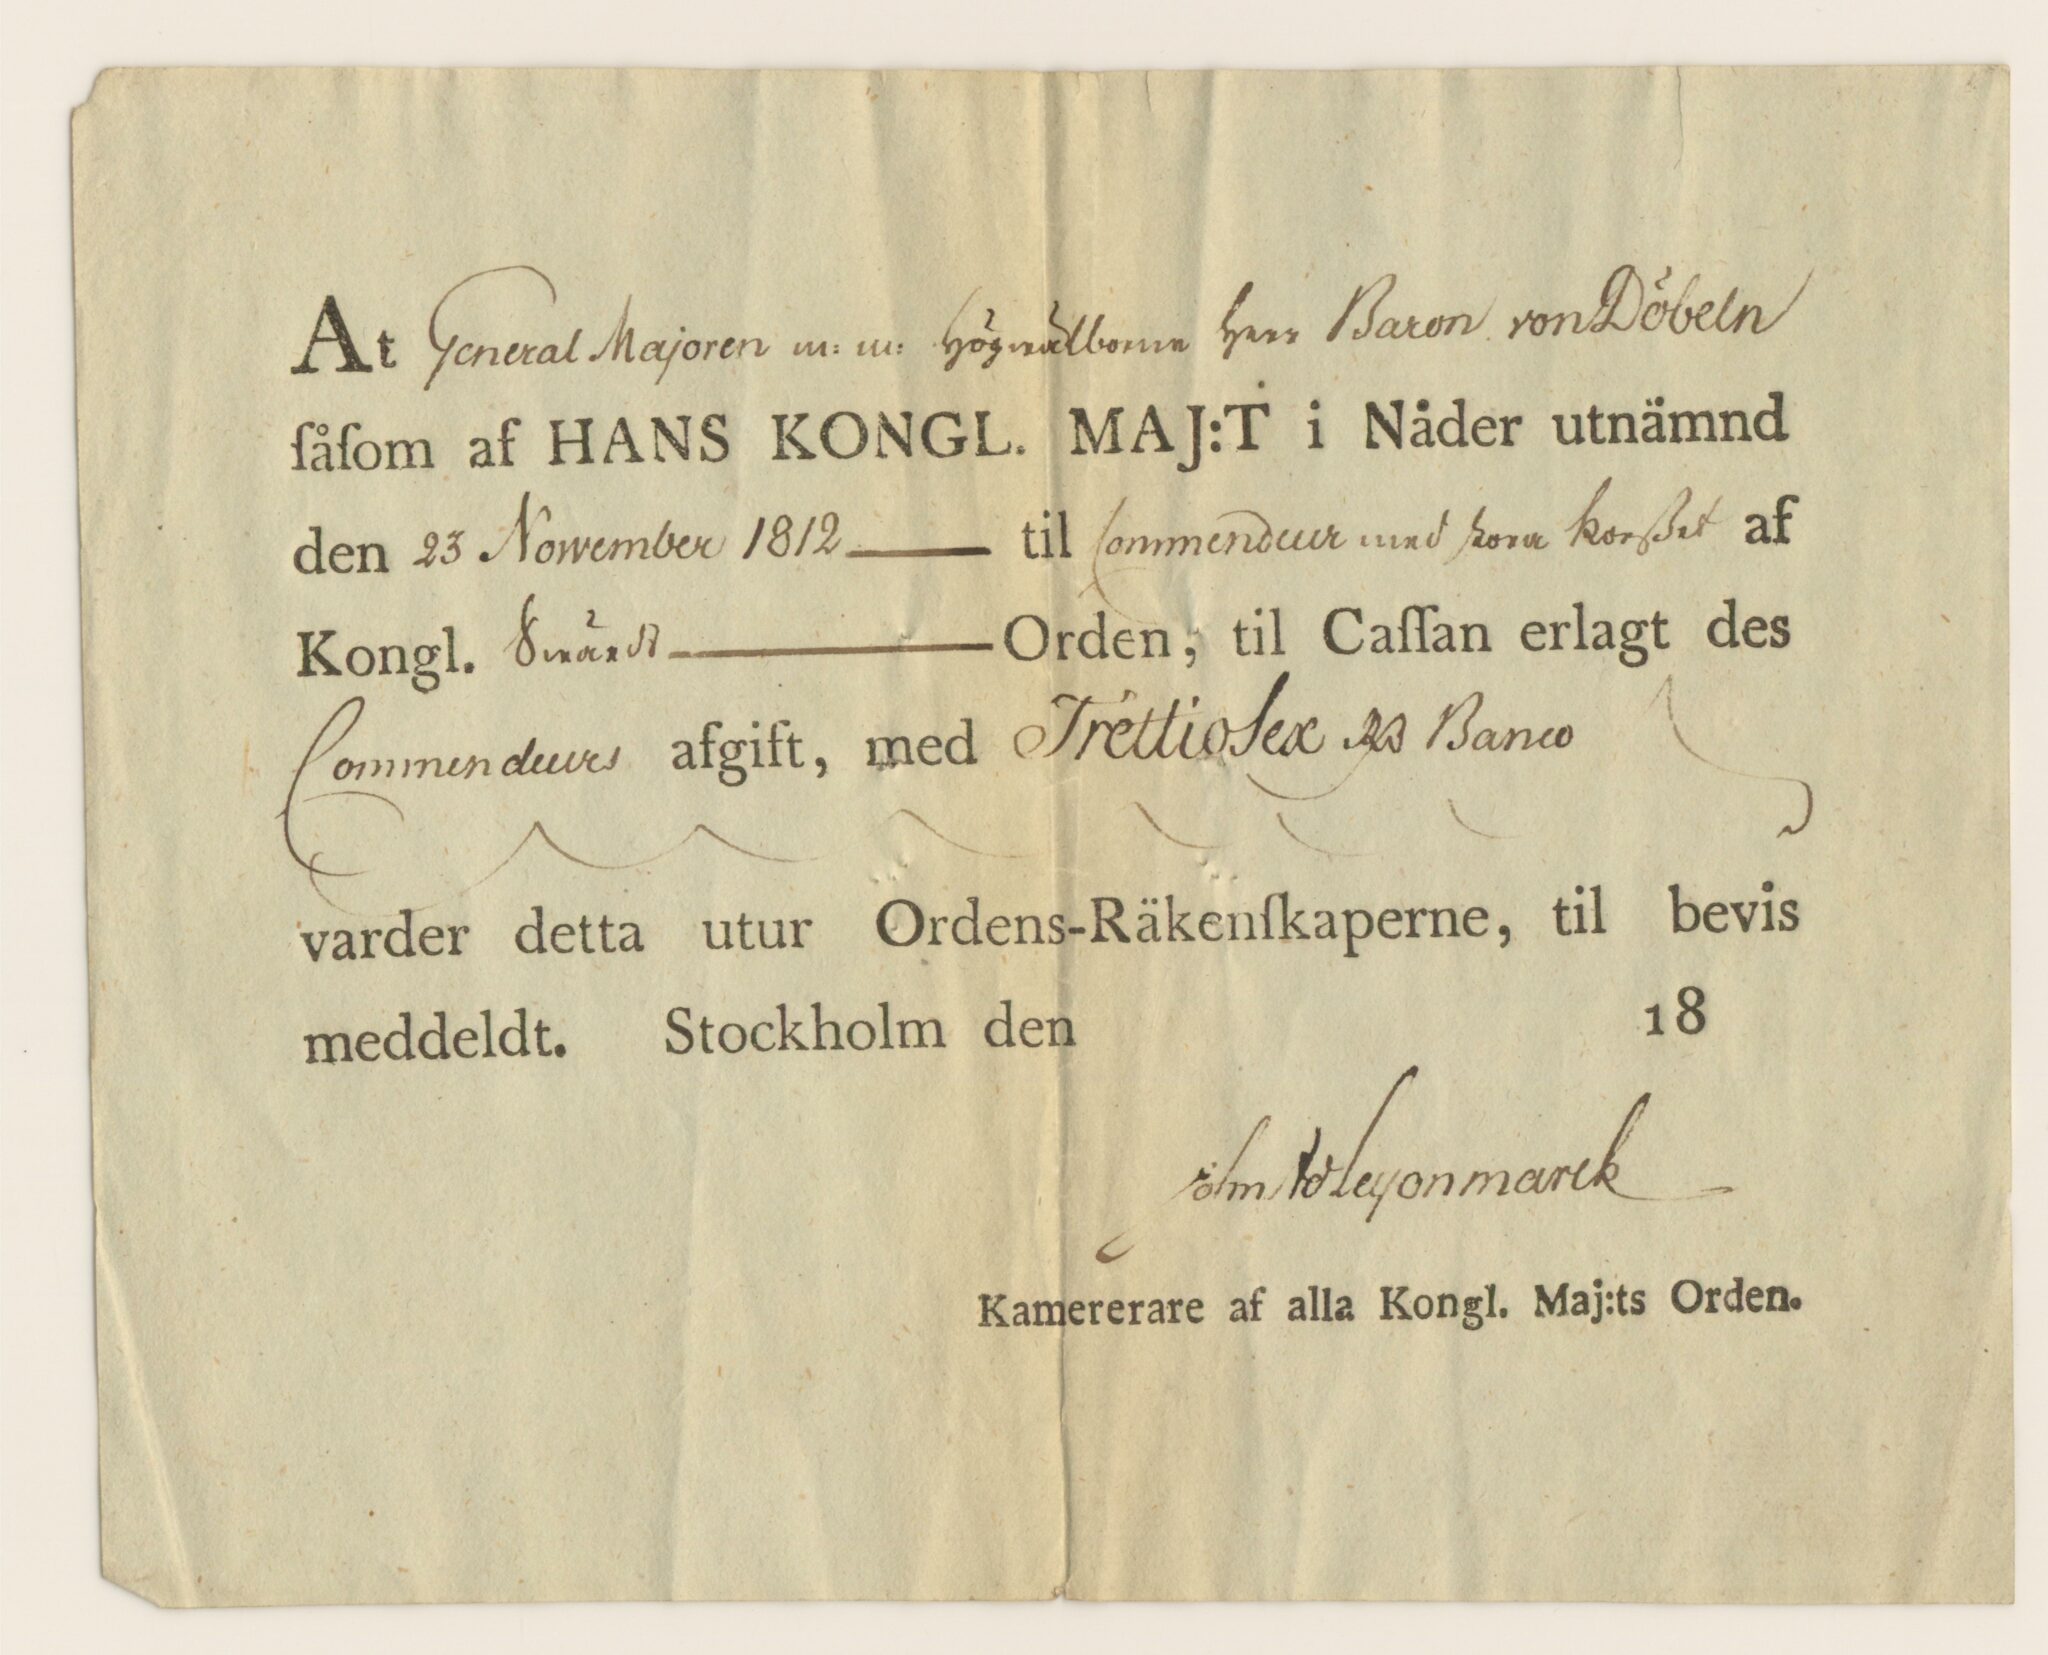 At General Majoren m: m: Högwälborne Herr Baron von Döbeln
ſåſom af HANS KONGL. MAJ:T i Nåder utnämnd
den 23 November 1812 til Commendeur med stora korsset af
Kongl. Swärds Orden, til Caſſan erlagt des
Commendeurs afgift, med Trettiosex Rd Banco
varder detta utur Ordens-Räkenſkaperne, til bevis
meddeldt. Stockholm den 18
Leyonmarck
Kamererare af alla Kongl. Maj:ts Orden.